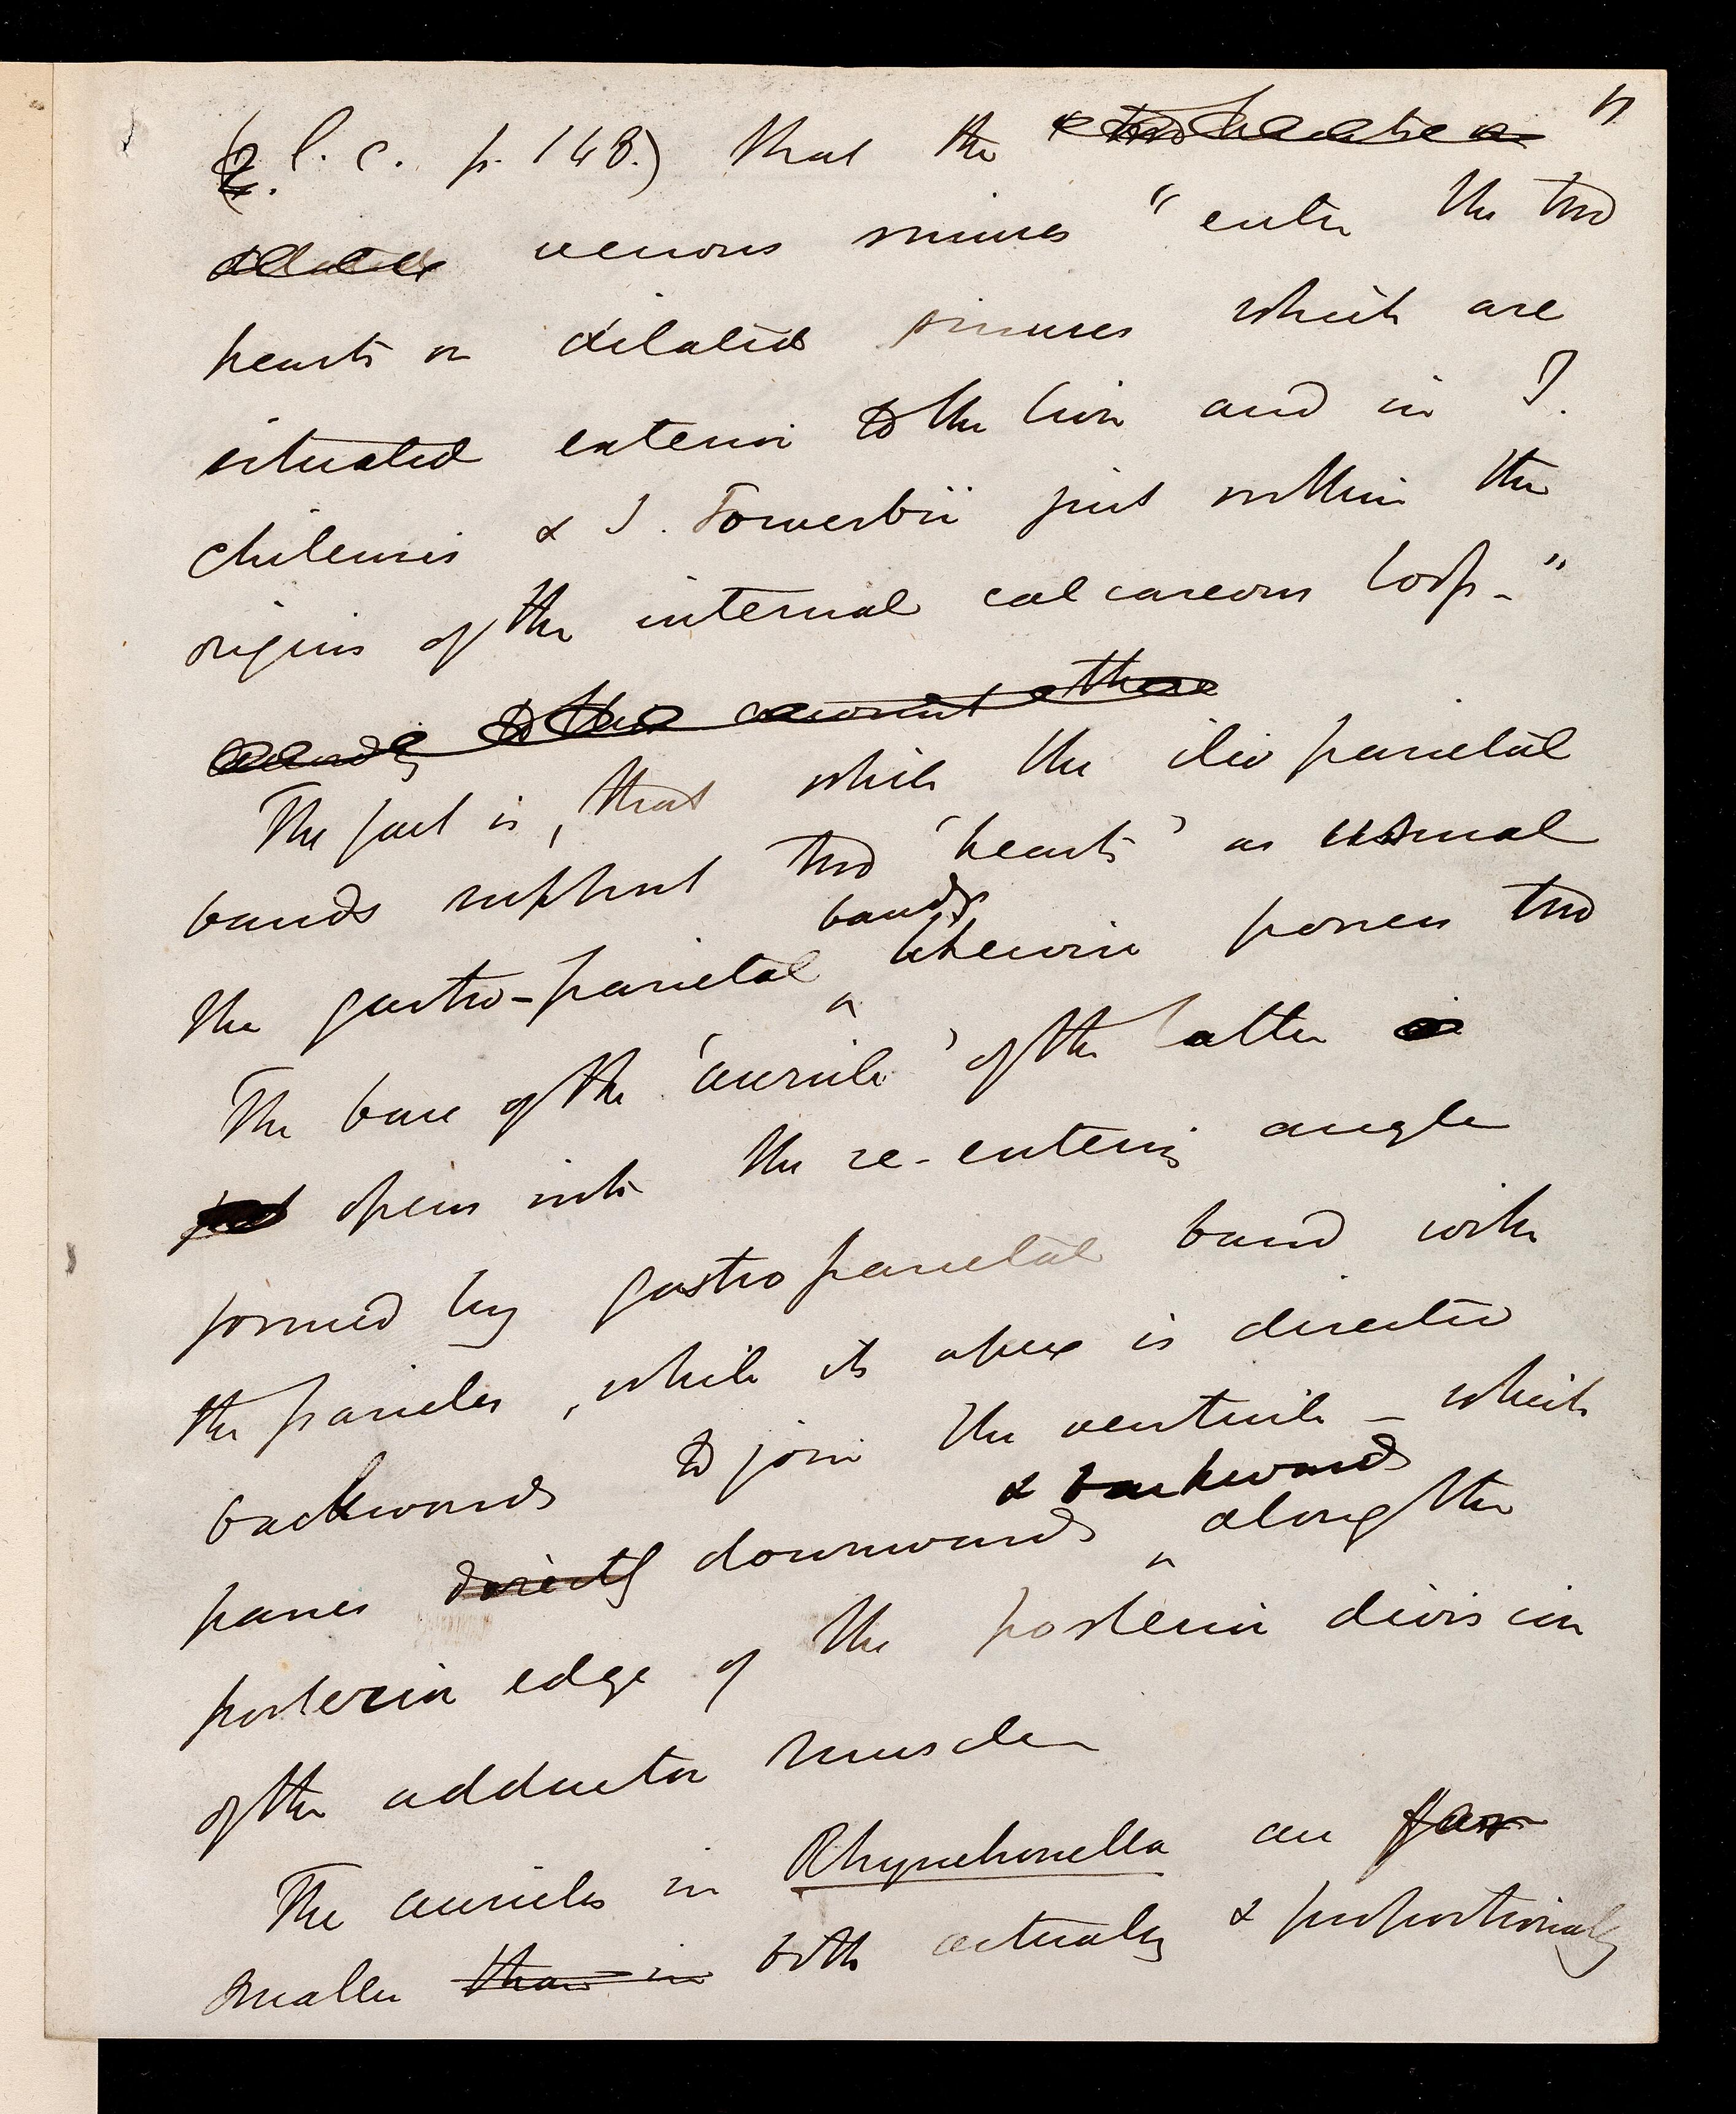 l. c. p. 148.) that the
venous sinuses "enter the two
hearts or dilated sinuses which are
situated exterior to the liver and in T.
chilensis & T. Sowerbii just within the
origins of the internal calcareous loop."
to this account there
The fact is, that while the ilio parietal
bands support two 'hearts' as usual
bands
the gastro-parietal ‸ likewise possess two
The base of the 'auricle' of the latter
opens into the re-entering angle
formed by gastro parietal band with
the parietes, while its apex is directed
backwards to join the ventricle – which
& backwards
passes directly downwards ‸ along the
posterior edge of the posterior division
of the adductor muscle
The auricles in Rhynchonella are far
smaller than in both actually & proportionally